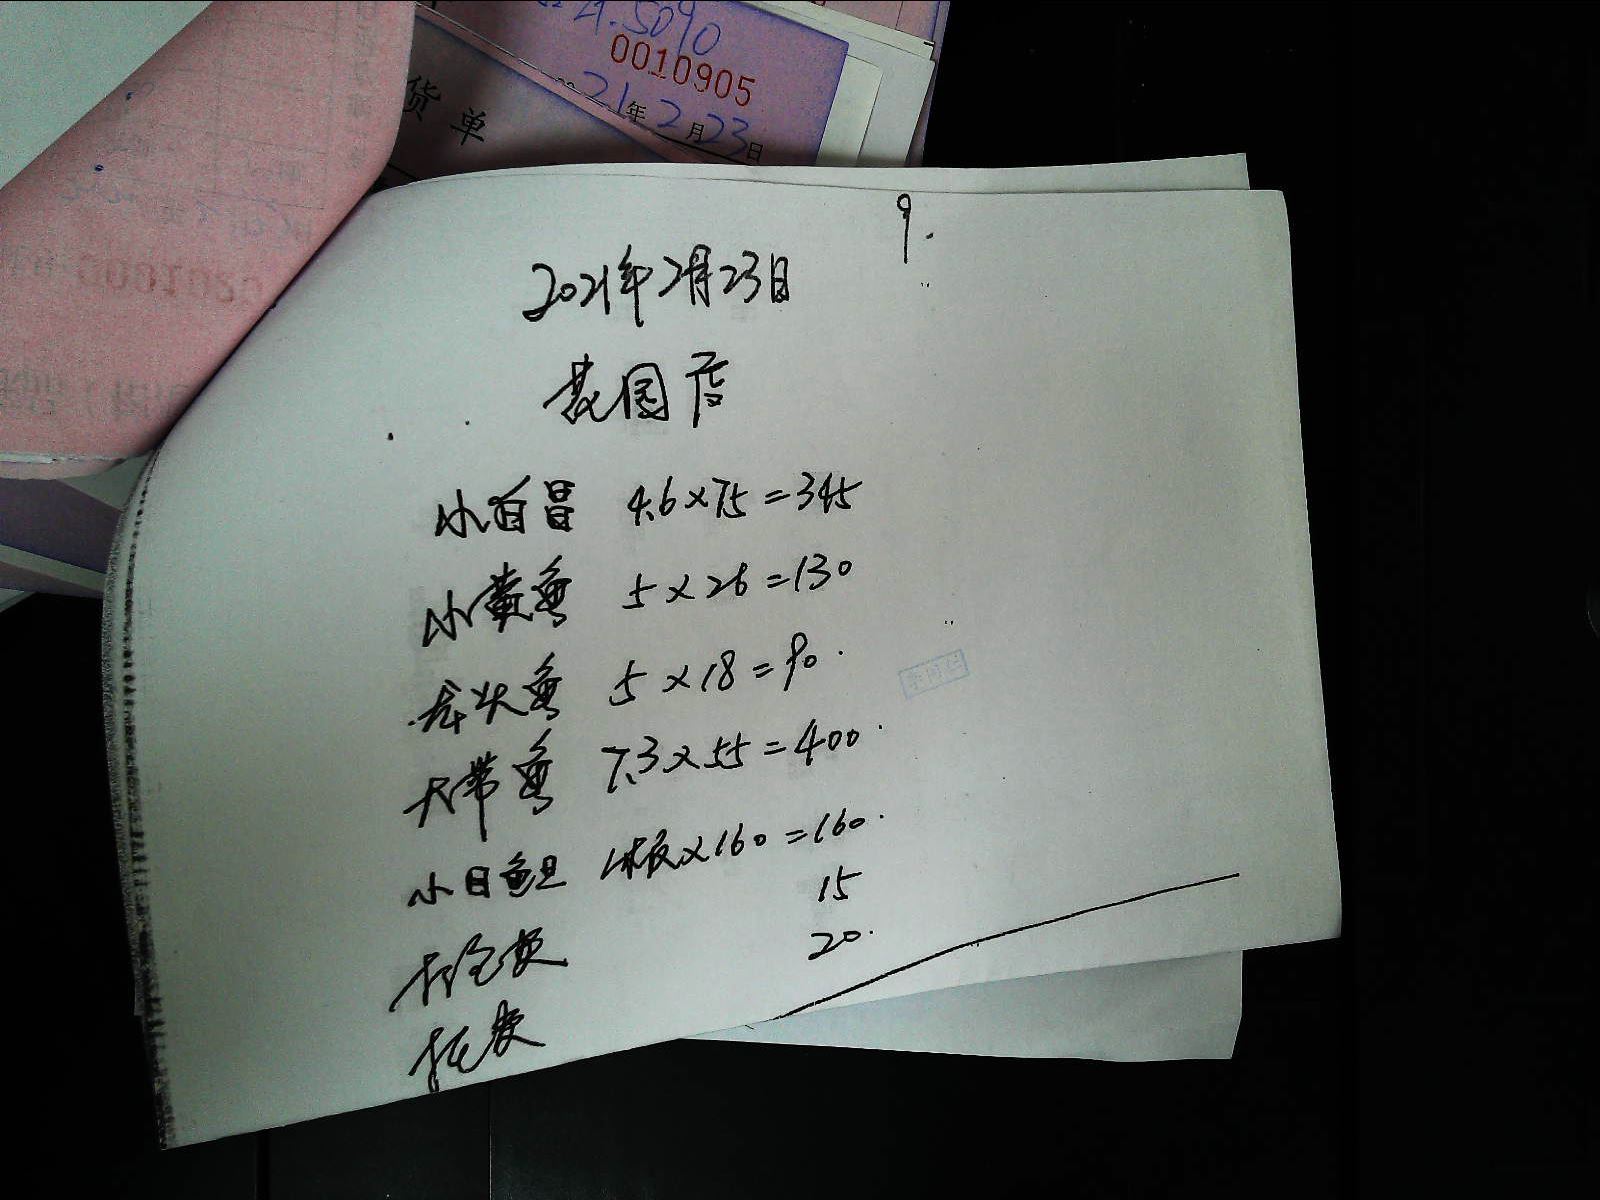 4.5090
0010905
21年2月23日
货单
9.
2021年2月23日
花园店
小白昌 4.6×75=345
小黄鱼 5×26=130
龙头鱼 5×18=90.
大带鱼 7.3×55=400.
小目鱼旦 1板×160=160.
打仓费 15
托费 20.